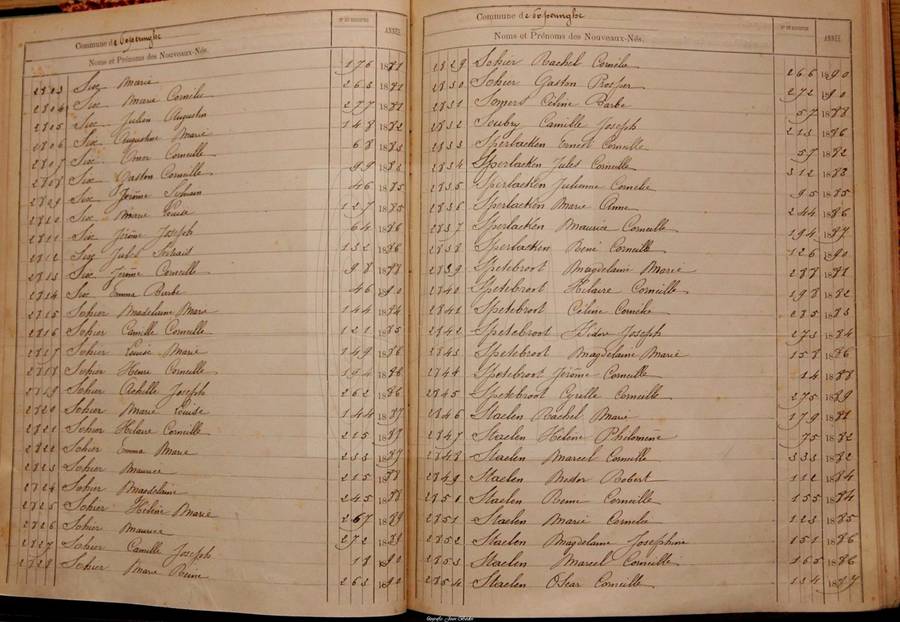 Commune de Poperinghe
Nos et Prénoms des Nouveaux-Nés.
ANNÉE
2803 Six Marie 176 1881
2804 Six Marie Cornélie 265 1881
2805 Six Julien Augustin 277 1881
2806 Six Augustine Marie 148 1882
2807 Six Omer Corneille 68 1883
2808 Six Gaston Corneille 99 1883
Six Jérôme 46 1885
Six Marie Louise 127 1885
2811 Six Jérôme Joseph 64 1886
2812 Six Jules 132 1886
2813 Six Jérôme Corneille 98 1888
2814 Six Emma Barbe 46 1890
2815 Sohier Madelaine Marie 144 1884
2816 Sohier Camille Corneille 121 1885
2817 Sohier Louise Marie 149 1886
2818 Sohier Henri Corneille 194 1886
2819 Sohier Achille Joseph 262 1886
2820 Sohier Marie Louise 144 1887
2821 Sohier Hilaire Corneille 215 1887
2822 Sohier Emma Marie 233 1887
2823 Sohier Maurice 215 1888
2824 Sohier Magdelaine 245 1888
2825 Sohier Hélène Marie 267 1889
2826 Sohier Maurice 272 1888
2827 Sohier Camille Joseph 18 1890
2828 Sohier Marie Reine 263 1890
Commune de Poperinghe
Noms et Prénoms des Nouveaux-Nés.
ANNÉE
2829 Sohier Rachel Cornélie 266 1890
2830 Sohier Gaston Prosper 272 1890
2831 Somers Céline Barbe 57 1888
2832 Soubry Camille Joseph 213 1886
2833 Sperlaeken Ernest Corneille 57 1882
2834 Sperlaeken Jules Corneille 312 1883
2835 Sperlaeken Julienne Cornélie 95 1885
2836 Sperlaeken Marie Anne 244 1886
2837 Sperlaeken Maurice Corneille 194 1887
2838 Sperlaeken Remi Corneille 126 1890
2839 Spetebroot Magdelaine Marie 288 1881
2840 Spetebroot Hilaire Corneille 198 1882
2841 Spetebroot Céline Cornélie 285 1883
2842 Spetebroot Isidore Joseph 273 1884
2843 Spetebroot Magdelaine Marie 158 1886
2844 Spetebroot Jérôme Corneille 14 1888
2845 Spetebroot Cyrille Corneille 275 1889
2846 Staelen Rachel Marie 179 1881
2847 Staelen Hélène Philomène 75 1882
2848 Staelen Marcel Corneille 333 1882
2849 Staelen Nestor Robert 112 1884
2850 Staelen Remi Corneille 155 1884
2851 Staelen Marie Cornélie 123 1885
2852 Staelen Magdelaine Joséphine 151 1886
2853 Staelen Marcel Corneille 165 1886
2854 Staelen Oscar Corneille 134 1887